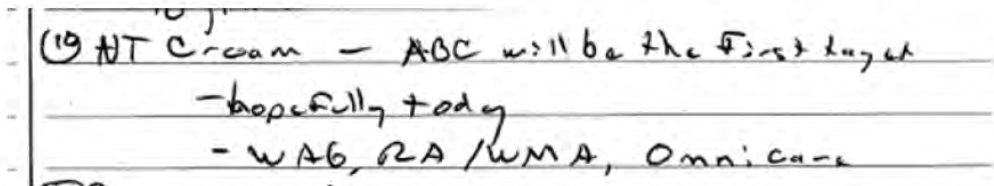 (19 NT Cream - ABC will be the First
- hopefully today
- WAG, RA/WMA, Omnicare